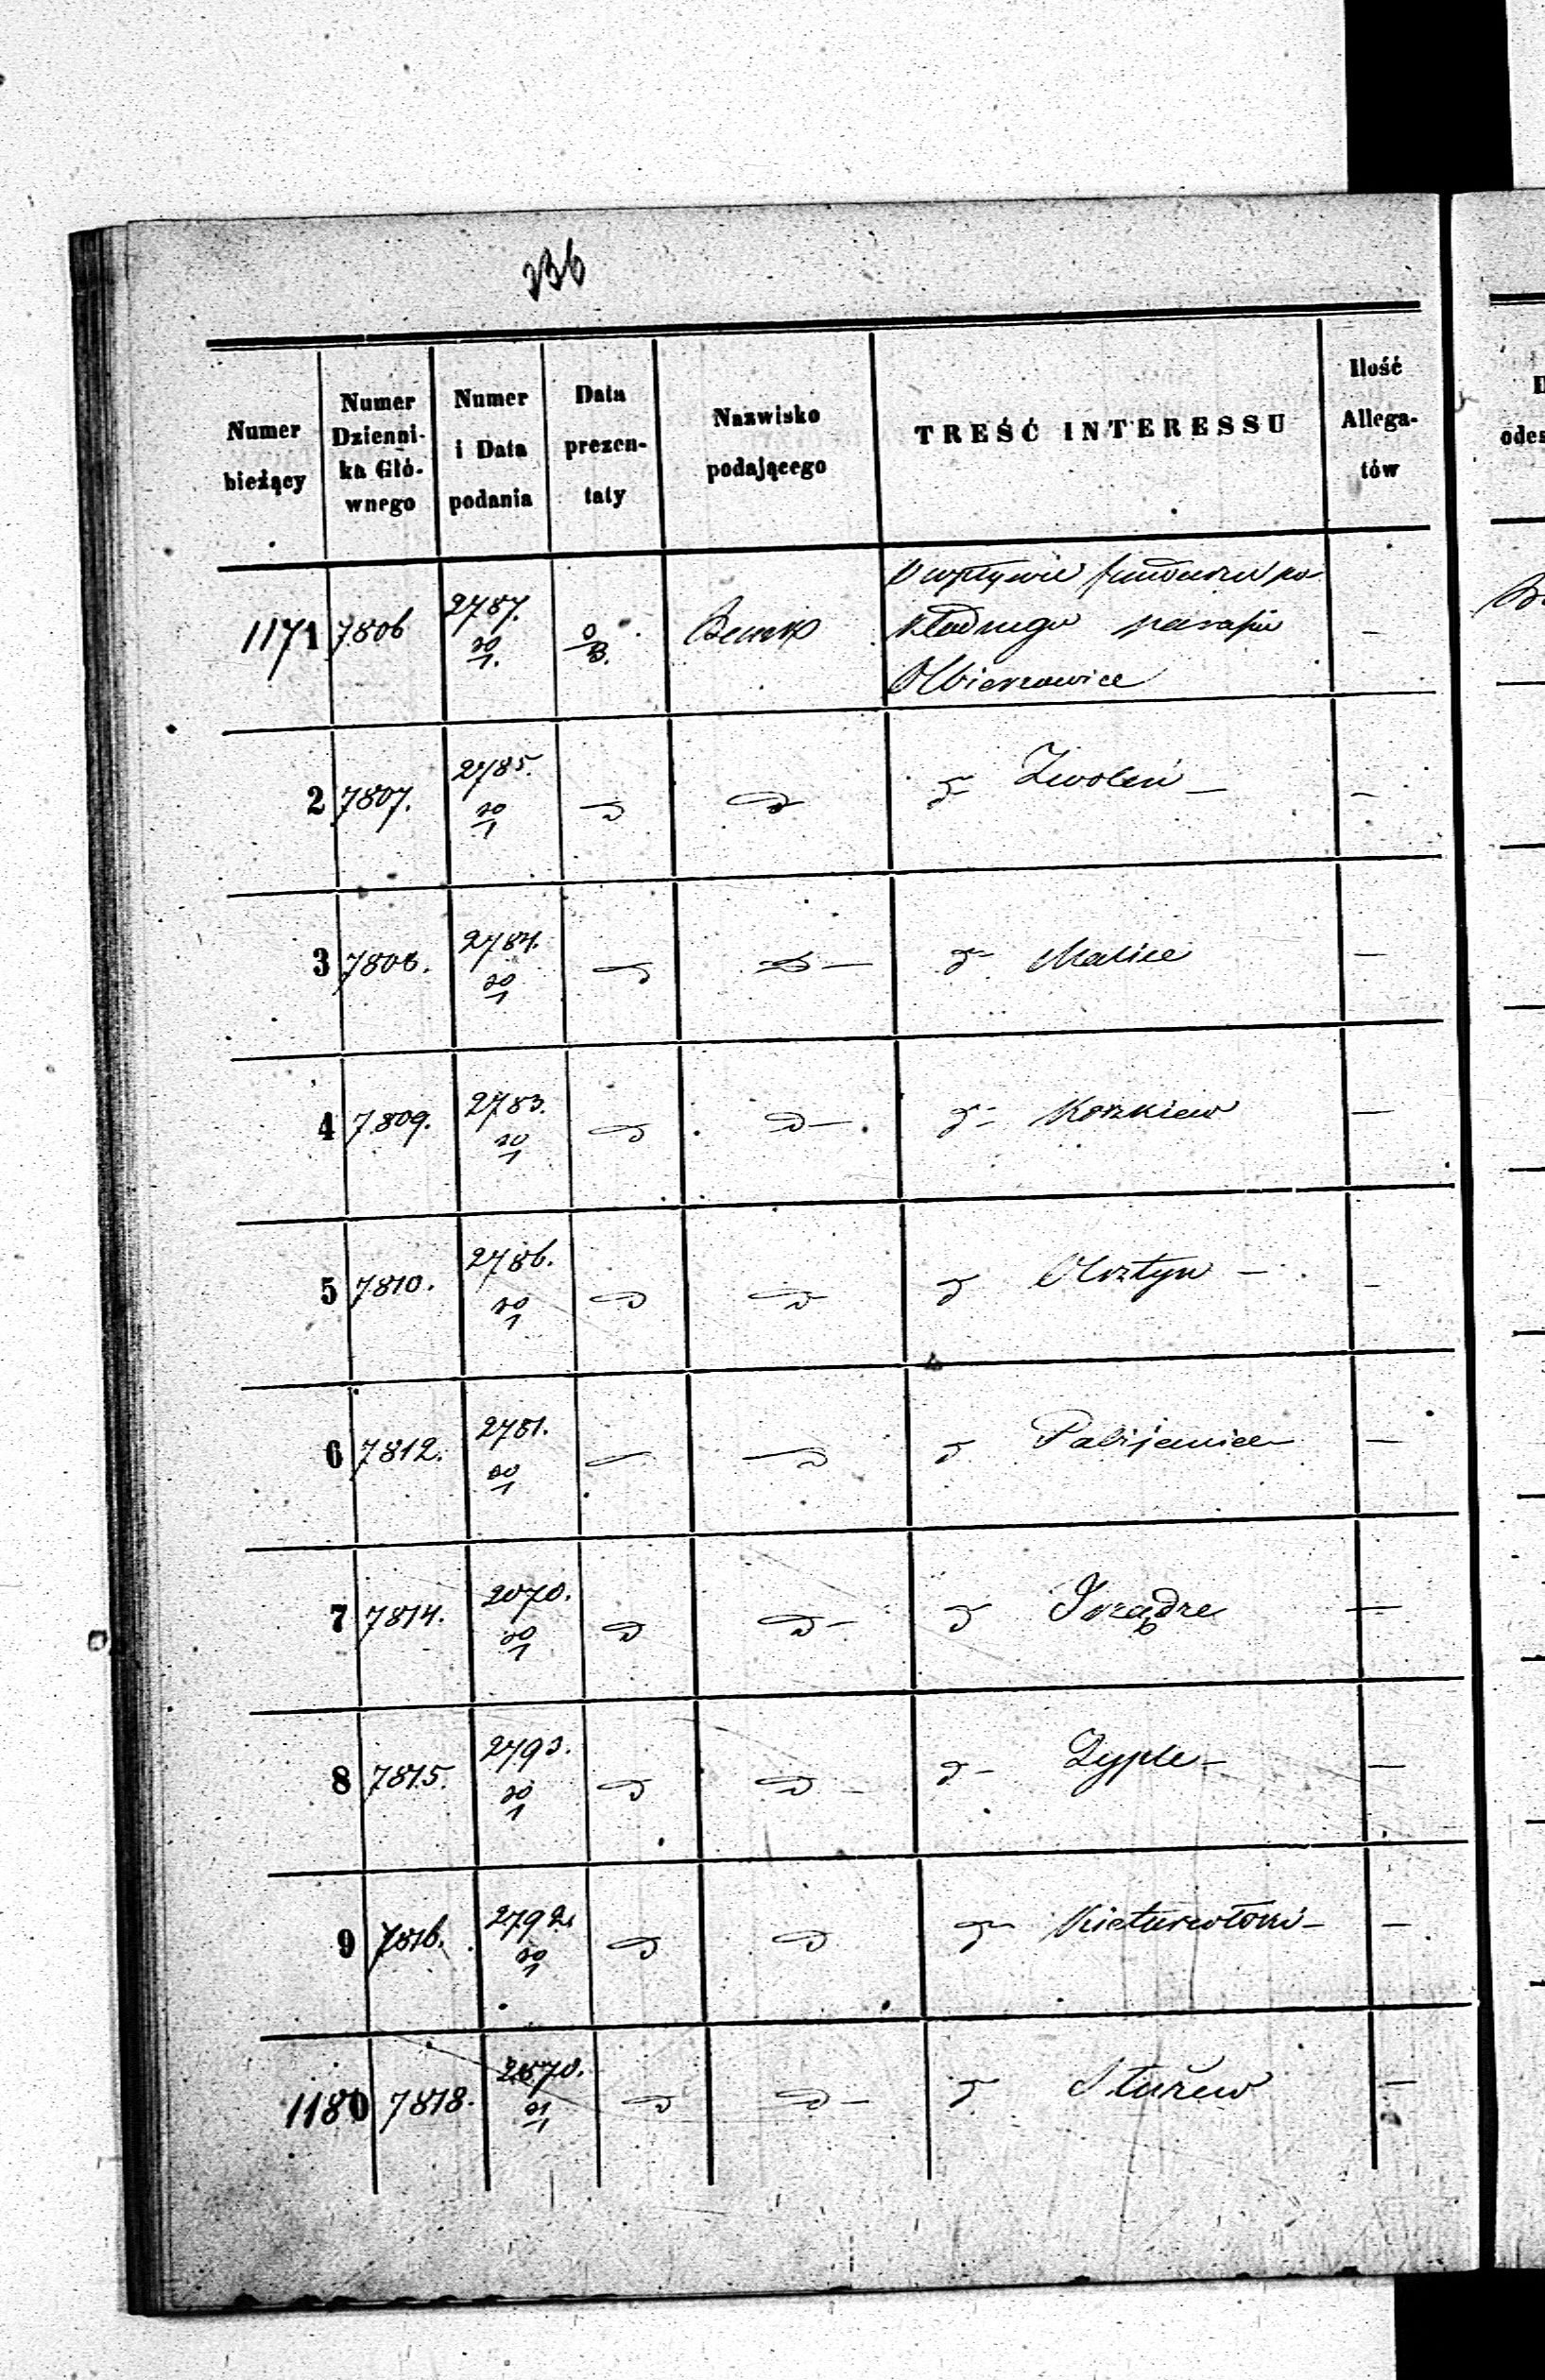 236
Numer bieżący
Numer Dzienni-ka Głó-wnego
Numer i Data podania
Data prezen-taty
Nazwisko podającego
TREŚĆ INTERESSU
Ilość Allega-tów
1171 7806 2787. 30/1. Bank O wpływie funduszu po-
kładnego parafii
Olbierzowice
2 7807. 2785. 30/1 d d d Zwoleń —
3 7808. 2784. 30/1 d d — d Malice —
4 7809. 2783. 30/1 d d — d Korzkiew —
5 7810. 2786. 30/1 d d d Olsztyn —
6 7812. 2781. 30/1 d d d Pabijanice —
7 7814. 2070. 30/1 d d — d —
8 7815. 2793. 30/1 d d — d Zyple —
9 7816. 2792. 30/1 d d d —
1180 7818. 2870. 31/1 d d — d —